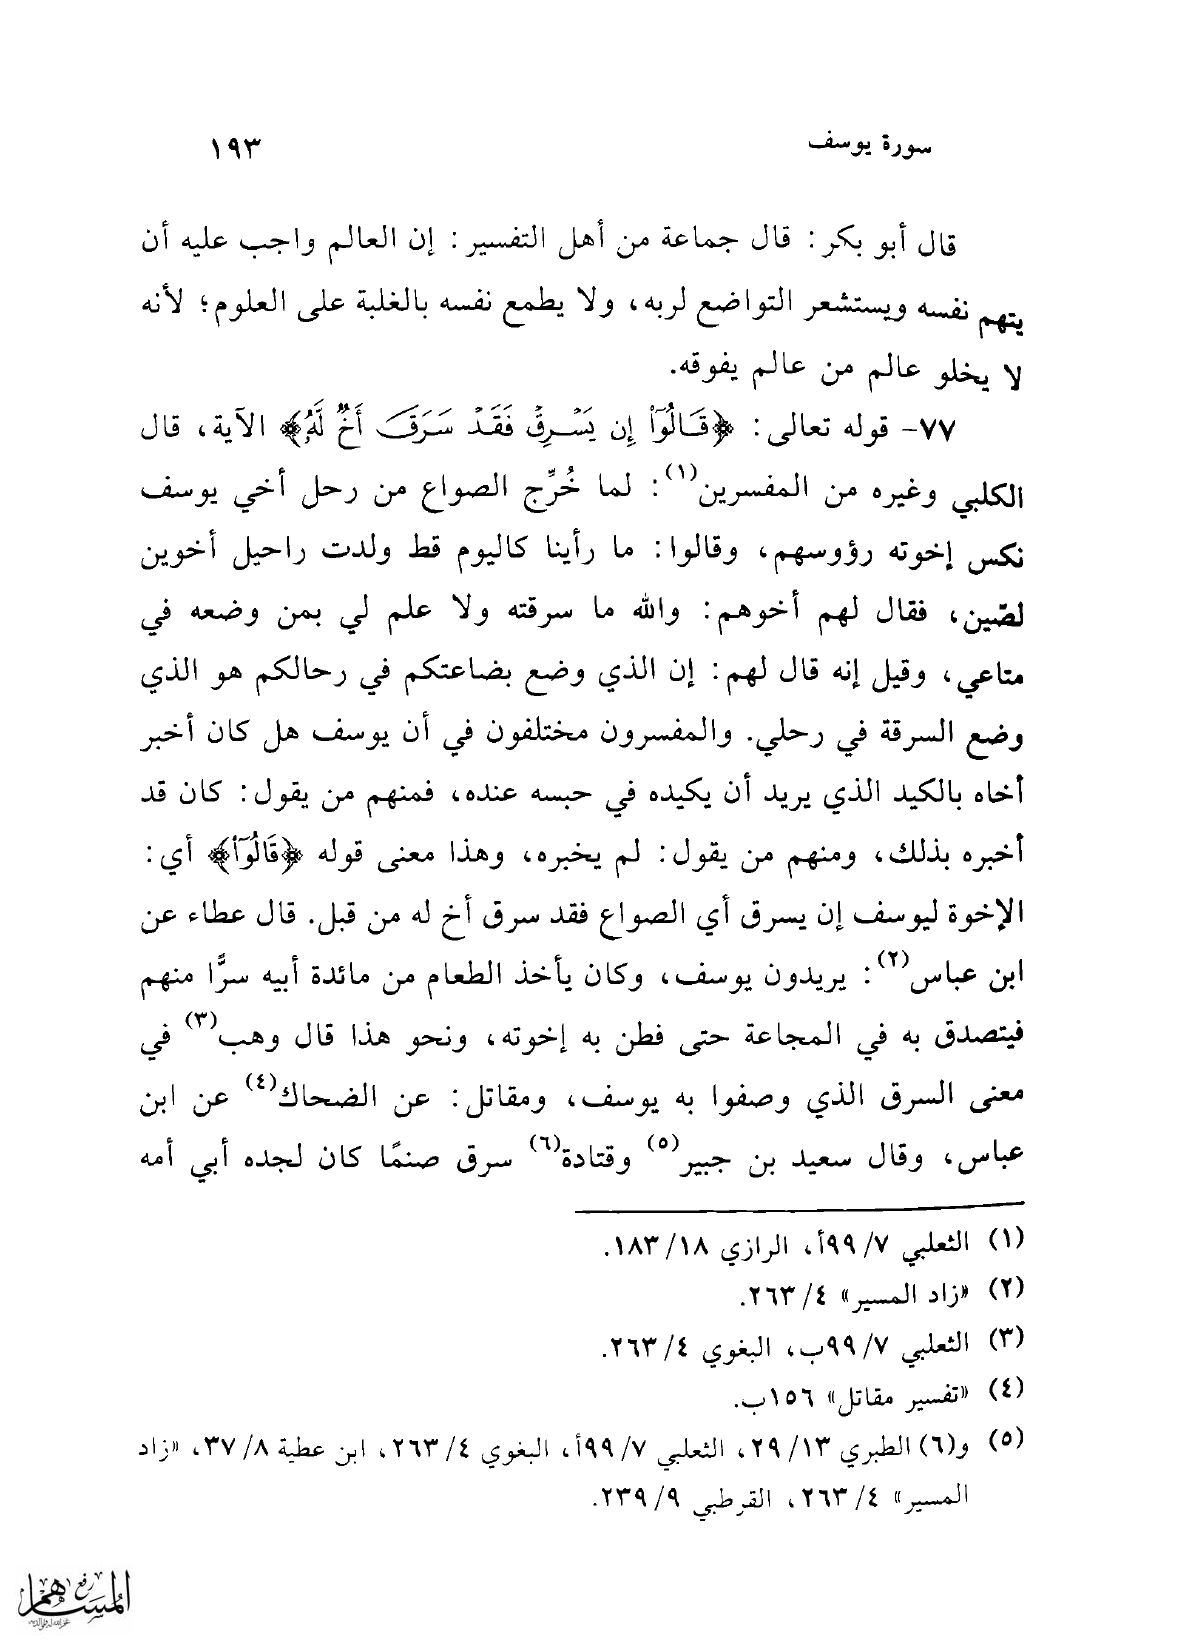 سورة يوسف ١٩٣
قال أبو بكر: قال جماعة من أهل التفسير: إن العالم واجب عليه أن
يتهم نفسه ويستشعر التواضع لربه، ولا يطمع نفسه بالغلبة على العلوم؛ لأنه
لا يخلو عالم من عالم يفوقه.
٧٧- قوله تعالى: ﴿قَالُوٓاْ إِن يَسۡرِقۡ فَقَدۡ سَرَقَ أَخٞ لَّهُۥ﴾ الآية، قال
الكلبي وغيره من المفسرين(١): لما خُرِّج الصواع من رحل أخي يوسف
نكس إخوته رؤوسهم، وقالوا: ما رأينا كاليوم قط ولدت راحيل أخوين
لصّين، فقال لهم أخوهم: والله ما سرقته ولا علم لي بمن وضعه في
متاعي، وقيل إنه قال لهم: إن الذي وضع بضاعتكم في رحالكم هو الذي
وضع السرقة في رحلي. والمفسرون مختلفون في أن يوسف هل كان أخبر
أخاه بالكيد الذي يريد أن يكيده في حبسه عنده، فمنهم من يقول: كان قد
أخبره بذلك، ومنهم من يقول: لم يخبره، وهذا معنى قوله ﴿قَالُوٓاْ﴾ أي:
الإخوة ليوسف إن يسرق أي الصواع فقد سرق أخ له من قبل. قال عطاء عن
ابن عباس(٢): يريدون يوسف، وكان يأخذ الطعام من مائدة أبيه سرًّا منهم
فيتصدق به في المجاعة حتى فطن به إخوته، ونحو هذا قال وهب(٣) في
معنى السرق الذي وصفوا به يوسف، ومقاتل: عن الضحاك(٤) عن ابن
عباس، وقال سعيد بن جبير(٥) وقتادة(٦) سرق صنمًا كان لجده أبي أمه
(١) الثعلبي ٧/ ٩٩أ، الرازي ١٨/ ١٨٣.
(٢) «زاد المسير» ٤/ ٢٦٣.
(٣) الثعلبي ٧/ ٩٩ب، البغوي ٤/ ٢٦٣.
(٤) «تفسير مقاتل» ١٥٦ب.
(٥) و(٦) الطبري ١٣/ ٢٩، الثعلبي ٧/ ٩٩أ، البغوي ٤/ ٢٦٣، ابن عطية ٨/ ٣٧، «زاد
المسير» ٤/ ٢٦٣، القرطبي ٩/ ٢٣٩.
رفع المساهم